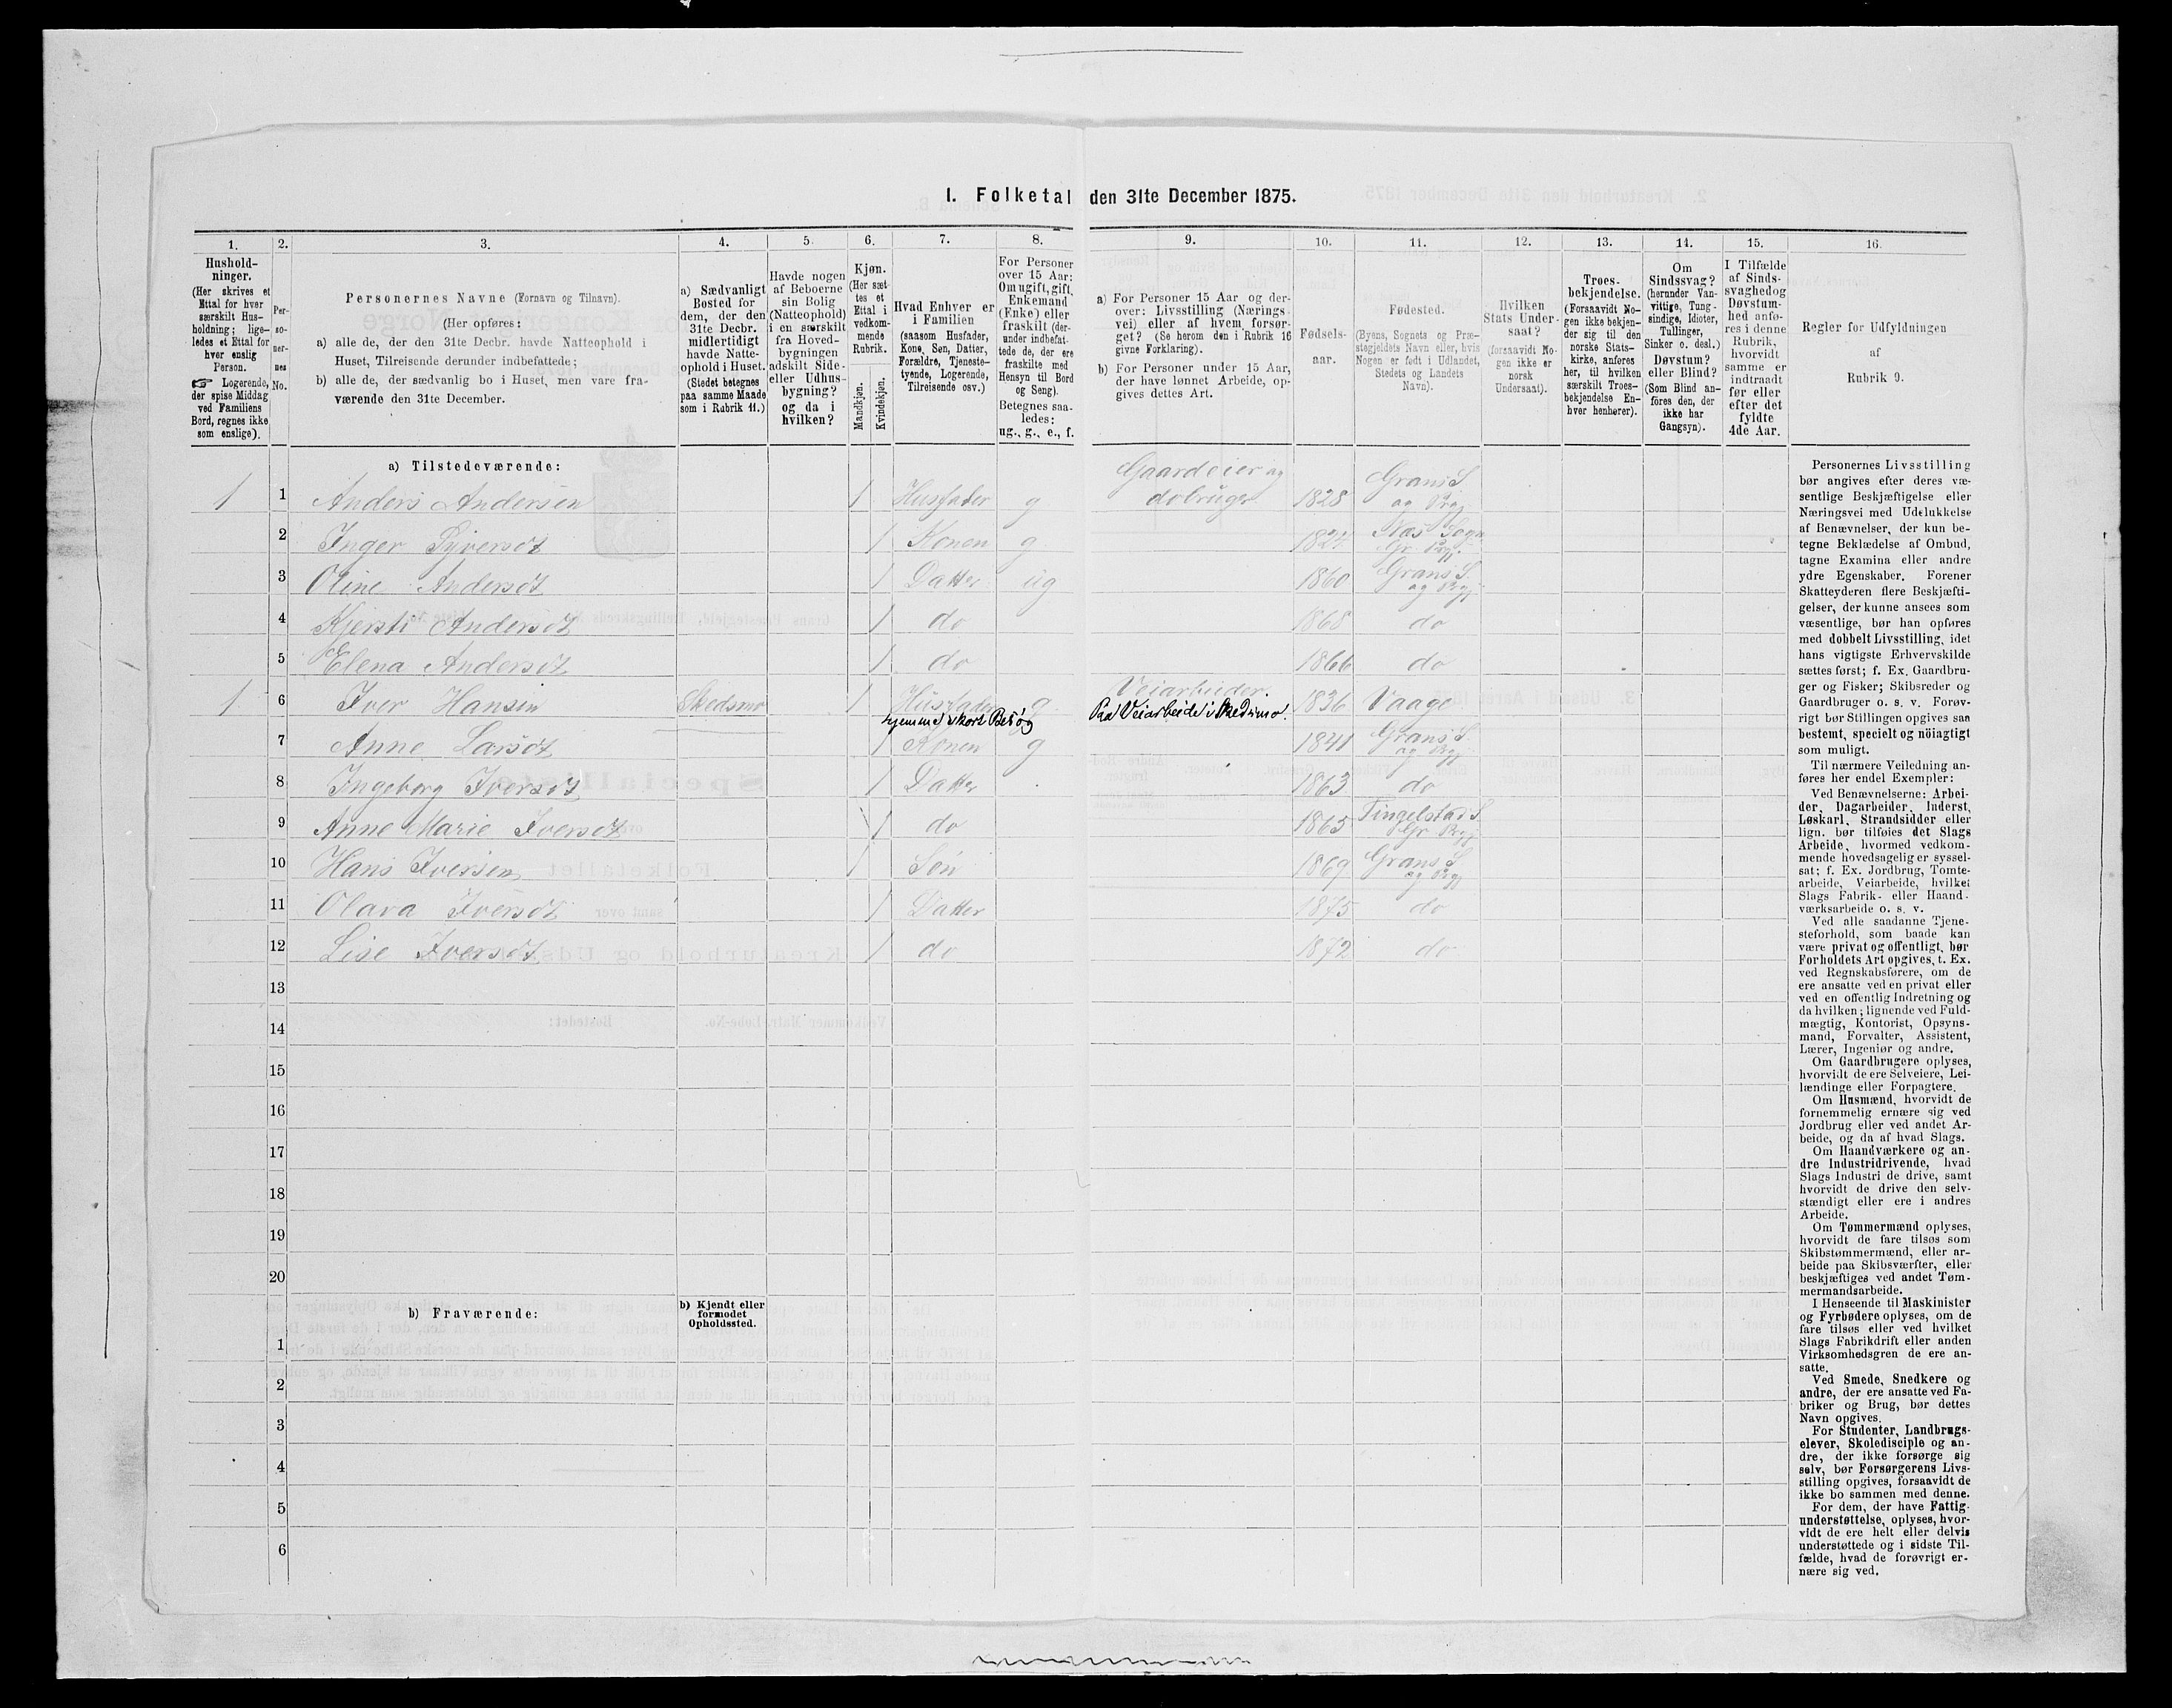 I. Folketal den 31te December 1875.
1. 2. 3. 4. 5. 6. 7. 8. 9. 10. 11. 12. 13. 14. 15. 16.
Hushold-
ninger.
(Her skrives et
Ettal for hver
særskilt Hus-
holdning; lige-
ledes et Ettal for
hver enslig
Person.
☞ Logerende,
der spise Middag
ved Familiens
Bord, regnes ikke
som enslige).
Per-
so-
ner-
nes
No.
Personernes Navne (Fornavn og Tilnavn).
(Her opføres:
a) alle de, der den 31te Decbr. havde Natteophold i
Huset, Tilreisende derunder indbefattede;
b) alle de, der sædvanlig bo i Huset, men vare fra-
værende den 31te December.
a) Sædvanligt
Bosted for
dem, der den
31te Decbr.
midlertidigt
havde Natte-
ophold i Huset.
(Stedet betegnes
paa samme Maade
som i Rubrik 11.)
Havde nogen
af Beboerne
sin Bolig
(Natteophold)
i en særskilt
fra Hoved-
bygningen
adskilt Side-
eller Udhus-
bygning?
og da i
hvilken?
Kjøn.
(Her sæt-
tes et
Ettal i
vedkom-
mende
Rubrik.
Mandkjøn.
Kvindekjøn.
Hvad Enhver er
i Familien
(saasom Husfader,
Kone, Søn, Datter,
Forældre, Tjeneste-
tyende, Logerende,
Tilreisende osv.)
For Personer
over 15 Aar:
Om ugift, gift,
Enkemand
(Enke) eller
fraskilt (der-
under indbefat-
tede de, der ere
fraskilte med
Hensyn til Bord
og Seng).
Betegnes saa-
ledes:
ug., g., e., f.
a) For Personer 15 Aar og der-
over: Livsstilling (Nærings-
vei) eller af hvem forsør-
get? (Se herom den i Rubrik 16
givne Forklaring).
b) For Personer under 15 Aar,
der have lønnet Arbeide, op-
gives dettes Art.
Fødsels-
aar.
Fødested.
(Byens, Sognets og Præ-
stegjeldets Navn eller, hvis
Nogen er født i Udlandet,
Stedets og Landets
Navn).
Hvilken
Stats Under-
saat?
(forsaavidt No-
gen ikke er
norsk
Undersaat).
Troes-
bekjendelse.
(Forsaavidt No-
gen ikke bekjen-
der sig til den
norske Stats-
kirke, anføres
her, til hvilken
særskilt Troes-
bekjendelse En-
hver henhører).
Om
Sindssvag?
(herunder Van-
vittige, Tung-
sindige, Idioter,
Tullinger,
Sinker o. desl.)
Døvstum?
eller Blind?
(Som Blind an-
føres den, der
ikke har
Gangsyn).
I Tilfælde
af Sinds-
svaghed og
Døvstum-
hed anfø-
res i denne
Rubrik,
hvorvidt
samme er
indtraadt
før eller
efter det
fyldte
4de Aar.
Regler for Udfyldningen
af
Rubrik 9.
a) Tilstedeværende:
1 1 Anders Andersen 1 Husfader g Gaardeier og dobruger 1828 Grans S og Prgj
2 Inger Syversdt 1 Konen g 1824 Næs Sogn Gr Prgj.
3 Oline Andersdt 1 Datter ug 1860 Grans S. og Prgj
4 Kjersti Andersdt 1 do 1868 do
5 Elena Andersdt 1 do 1866 do
1 6 Iver Hansen Skedsmo 1 Husfader g Veiarbeider 1836 Vaage
hjemme i kort Besøg Paa Veiarbeide i Skedsmo.
7 Anne Larsdt 1 Konen g 1841 Grans S og Prgj
8 Ingeborg Iversdt 1 Datter 1863 do
9 Anne Marie Iversdt 1 do 1865 Tingelstad S Gr Prgj
10 Hans Iversen 1 Søn 1869 Grans S og Prgj
11 Olava Iversdt 1 Datter 1875 do
12 Lise Iversdt 1 do 1872 do
13
14
15
16
17
18
19
20
b) Fraværende:
b) Kjendt eller
formodet
Opholdssted.
1
2
3
4
5
6
Personernes Livsstilling
bør angives efter deres væ-
sentlige Beskjæftigelse eller
Næringsvei med Udelukkelse
af Benævnelser, der kun be-
tegne Beklædelse af Ombud,
tagne Examina eller andre
ydre Egenskaber. Forener
Skatteyderen flere Beskjæfti-
gelser, der kunne ansees som
væsentlige, bør han opføres
med dobbelt Livsstilling, idet
hans vigtigste Erhvervskilde
sættes først; f. Ex. Gaardbru-
ger og Fisker; Skibsreder og
Gaardbruger o. s. v. Forøv-
rigt bør Stillingen opgives saa
bestemt, specielt og nöiagtigt
som muligt.
Til nærmere Veiledning an-
føres her endel Exempler:
Ved Benævnelserne: Arbei-
der, Dagarbeider, Inderst,
Løskarl, Strandsidder eller
lign. bør tilføies det Slags
Arbeide, hvormed vedkom-
mende hovedsagelig er syssel-
sat; f. Ex. Jordbrug, Tomte-
arbeide, Veiarbeide, hvilket
Slags Fabrik- eller Haand-
værksarbeide o. s. v.
Ved alle saadanne Tjene-
steforhold, som baade kan
være privat og offentligt, bør
Forholdets Art opgives, t. Ex.
ved Regnskabsførere, om de
ere ansatte ved en privat eller
ved en offentlig Indretning og
da hvilken; lignende ved Fuld-
mægtig, Kontorist, Opsyns-
mand, Forvalter, Assistent,
Lærer, Ingeniør og andre.
Om Gaardbrugere oplyses,
hvorvidt de ere Selveiere, Lei-
lændinge eller Forpagtere.
Om Husmænd, hvorvidt de
fornemmelig ernære sig ved
Jordbrug eller ved andet Ar-
beide, og da af hvad Slags.
Om Haandværkere og an-
dre Industridrivende, hvad
Slags Industri de drive, samt
hvorvidt de drive den selv-
stændigt eller ere i andres
Arbeide.
Om Tømmermænd oplyses,
hvorvidt de fare tilsøs som
Skibstømmermænd, eller ar-
beide paa Skibsværfter, eller
beskjæftiges ved andet Tøm-
mermandsarbeide.
I Henseende til Maskinister
og Fyrbødere oplyses, om de
fare tilsøs eller ved hvilket
Slags Fabrikdrift eller anden
Virksomhedsgren de ere an-
satte.
Ved Smede, Snedkere og
andre, der ere ansatte ved Fa-
briker og Brug, bør dettes
Navn opgives.
For Studenter, Landbrugs-
elever, Skoledisciple og an-
dre, der ikke forsørge sig
selv, bør Forsørgerens Livs-
stilling opgives, forsaavidt de
ikke bo sammen med denne.
For dem, der have Fattig-
understøttelse, oplyses, hvor-
vidt de ere helt eller delvis
understøttede og i sidste Til-
fælde, hvad de forøvrigt er-
nære sig ved.